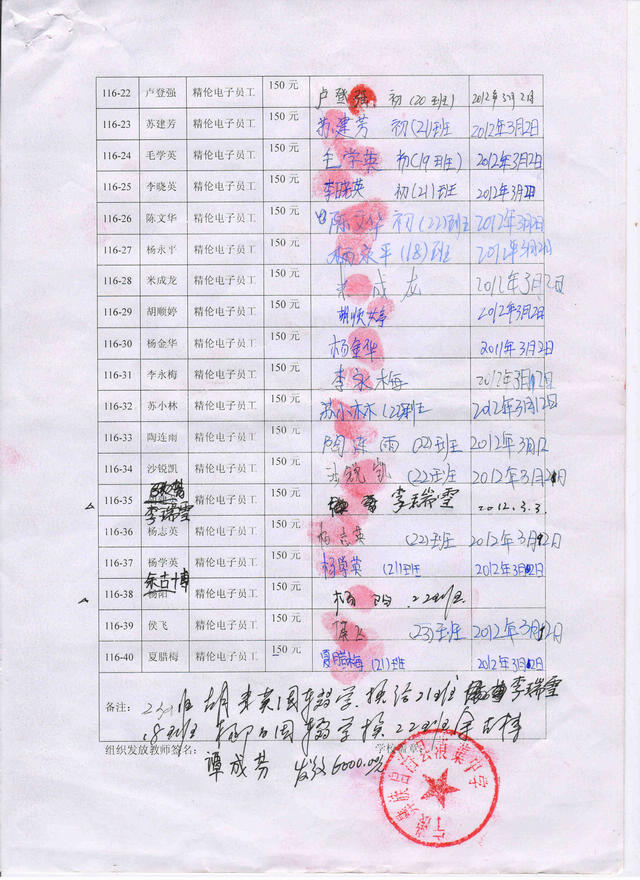 116-22 卢登强 精伦电子员工 150 元 卢登强 初(20班) 2012年3月2日
116-23 苏建芳 精伦电子员工 150 元 苏建芳 初(21)班 2012年3月2日
116-24 毛学英 精伦电子员工 150 元 毛学英 初(19班) 2012年3月2日
116-25 李晓英 精伦电子员工 150 元 李晓英 初(21)班 2012年3月2日
116-26 陈文华 精伦电子员工 150 元 陈文华 初(22)班 2012年3月2日
116-27 杨永平 精伦电子员工 150 元 杨永平 (18)班 2012年3月2日
116-28 米成龙 精伦电子员工 150 元 米成龙 2012年3月2日
116-29 胡顺婷 精伦电子员工 150 元 胡顺婷 2012年3月2日
116-30 杨金华 精伦电子员工 150 元 杨金华 2011年3月2日
116-31 李永梅 精伦电子员工 150 元 李永梅 2012年3月2日
116-32 苏小林 精伦电子员工 150 元 苏小林 (22)班 2012年3月12日
116-33 陶连雨 精伦电子员工 150 元 陶连雨 (22)班 2012年3月12
116-34 沙锐凯 精伦电子员工 150 元 沙锐凯 (22)班 2012年3月2日
116-35 李瑞雪 精伦电子员工 150 元 李瑞雪 2012.3.3.
116-36 杨志英 精伦电子员工 150 元 杨志英 (22)班 2012年3月2日
116-37 杨学英 精伦电子员工 150 元 杨学英 (21)班 2012年3月2日
余吉博
116-38 杨阳 精伦电子员工 150 元 杨阳 22班
116-39 侯飞 精伦电子员工 150 元 侯飞 (23)班 2012年3月12日
116-40 夏腊梅 精伦电子员工 150 元 夏腊梅 (21)班 2012年3月2日
备注: 胡 英因辍学 换给21班 李瑞雪
18班 杨阳因辍学换22班余吉博
组织发放教师签名: 学校盖章:
谭成芬 发放6000.0元
宁蒗彝族自治县浪蕖中学